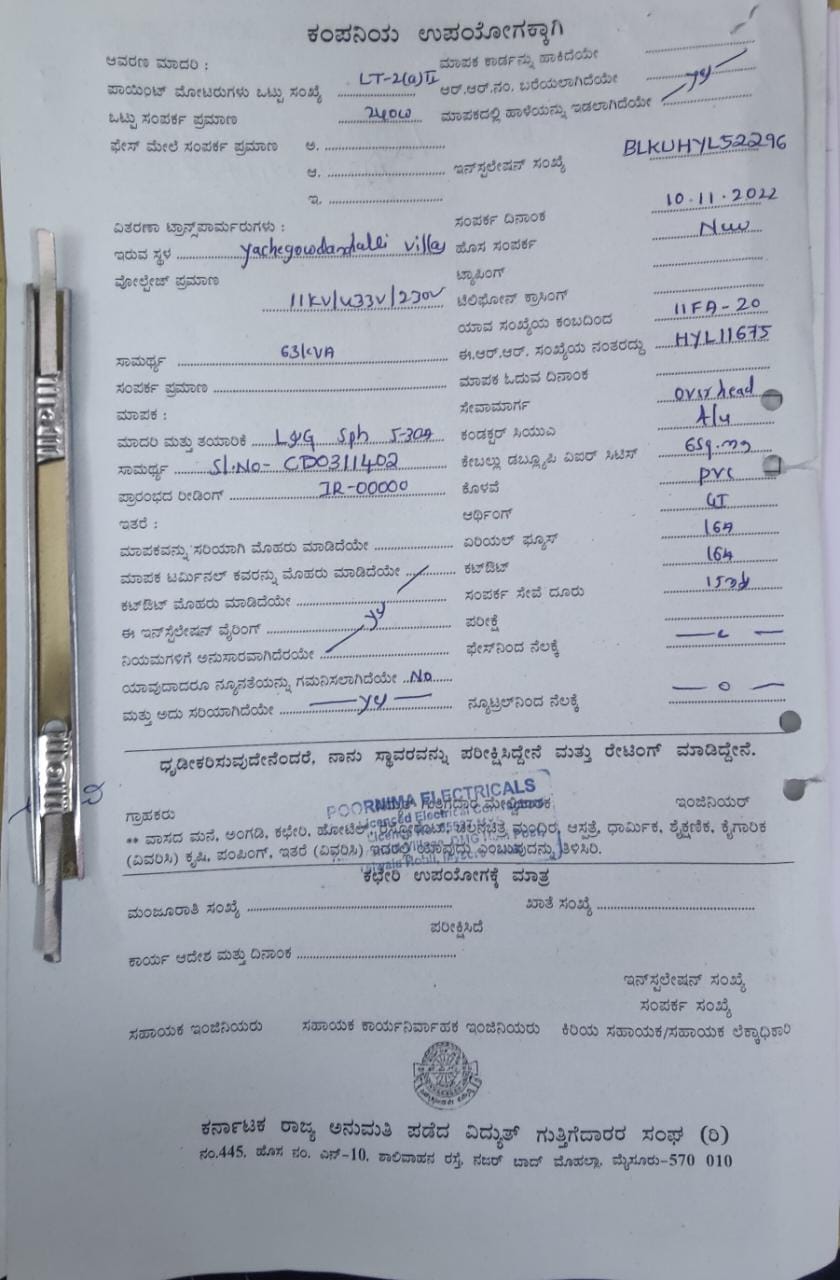 ಕಂಪನಿಯ ಉಪಯೋಗಕ್ಕಾಗಿ
ಆವರಣ ಮಾದರಿ : ಮಾಪಕ ಕಾರ್ಡನ್ನು ಹಾಕಿದೆಯೇ
ಪಾಯಿಂಟ್ ಮೋಟರುಗಳು ಒಟ್ಟು ಸಂಖ್ಯೆ LT-2(a)II ಆರ್.ಆರ್.ನಂ. ಬರೆಯಲಾಗಿದೆಯೇ
ಒಟ್ಟು ಸಂಪರ್ಕ ಪ್ರಮಾಣ 240W ಮಾಪಕದಲ್ಲಿ ಹಾಳೆಯನ್ನು ಇಡಲಾಗಿದೆಯೇ yes
ಫೇಸ್ ಮೇಲೆ ಸಂಪರ್ಕ ಪ್ರಮಾಣ ಅ.
ಆ. ಇನ್‌ಸ್ಟಲೇಷನ್ ಸಂಖ್ಯೆ BLKUHYL52296
ಇ.
ವಿತರಣಾ ಟ್ರಾನ್ಸ್‌ಪಾರ್ಮರುಗಳು : ಸಂಪರ್ಕ ದಿನಾಂಕ 10.11.2022
ಇರುವ ಸ್ಥಳ ಹೊಸ ಸಂಪರ್ಕ New
ವೋಲ್ಟೇಜ್ ಪ್ರಮಾಣ ಟ್ಯಾಪಿಂಗ್
11KV/433V/230V ಟೆಲಿಫೋನ್ ಕ್ರಾಸಿಂಗ್
ಯಾವ ಸಂಖ್ಯೆಯ ಕಂಬದಿಂದ 11FA-20
ಸಾಮರ್ಥ್ಯ 63KVA ಈ.ಆರ್.ಆರ್. ಸಂಖ್ಯೆಯ ನಂತರದ್ದು HYL11675
ಸಂಪರ್ಕ ಪ್ರಮಾಣ ಮಾಪಕ ಓದುವ ದಿನಾಂಕ
ಮಾಪಕ : ಸೇವಾಮಾರ್ಗ over head
ಮಾದರಿ ಮತ್ತು ತಯಾರಿಕೆ L&G Sph 5-30A ಕಂಡಕ್ಟರ್ ಸಿಯುಎ
ಸಾಮರ್ಥ್ಯ Sl.No- CD0311402 ಕೇಬಲ್ಲು ಡಬ್ಲ್ಯೂಪಿ ವಿಐಆರ್ ಸಿಟಿಎಸ್
ಪ್ರಾರಂಭದ ರೀಡಿಂಗ್ IR-00000 ಕೊಳವೆ PVC
ಇತರೆ : ಆರ್ಥಿಂಗ್ GI
ಮಾಪಕವನ್ನು ಸರಿಯಾಗಿ ಮೊಹರು ಮಾಡಿದೆಯೇ ಏರಿಯಲ್ ಫ್ಯೂಸ್ 16A
ಮಾಪಕ ಟರ್ಮಿನಲ್ ಕವರನ್ನು ಮೊಹರು ಮಾಡಿದೆಯೇ ಕಟ್‌ಔಟ್ 16A
ಕಟ್‌ಔಟ್ ಮೊಹರು ಮಾಡಿದೆಯೇ ಸಂಪರ್ಕ ಸೇವೆ ದೂರು
ಈ ಇನ್‌ಸ್ಟೆಲೇಷನ್ ವೈರಿಂಗ್ yes ಪರೀಕ್ಷೆ
ನಿಯಮಗಳಿಗೆ ಅನುಸಾರವಾಗಿದೆರಯೇ ಫೇಸ್‌ನಿಂದ ನೆಲಕ್ಕೆ
ಯಾವುದಾದರೂ ನ್ಯೂನತೆಯನ್ನು ಗಮನಿಸಲಾಗಿದೆಯೇ No
ಮತ್ತು ಅದು ಸರಿಯಾಗಿದೆಯೇ yes ನ್ಯೂಟ್ರಲ್‌ನಿಂದ ನೆಲಕ್ಕೆ
ಧೃಡೀಕರಿಸುವುದೇನೆಂದರೆ, ನಾನು ಸ್ಥಾವರವನ್ನು ಪರೀಕ್ಷಿಸಿದ್ದೇನೆ ಮತ್ತು ರೇಟಿಂಗ್ ಮಾಡಿದ್ದೇನೆ.
POORNIMA ELECTRICALS
Licenced Electrical Contractor
ಗ್ರಾಹಕರು ಗುತ್ತಿಗೆದಾರ ಇಂಜಿನಿಯರ್
** ವಾಸದ ಮನೆ, ಅಂಗಡಿ, ಕಛೇರಿ, ಹೋಟೆಲ್, ಚಲನಚಿತ್ರ ಮಂಧಿರ, ಆಸ್ಪತ್ರೆ, ಧಾರ್ಮಿಕ, ಶೈಕ್ಷಣಿಕ, ಕೈಗಾರಿಕ
(ವಿವರಿಸಿ) ಕೃಷಿ, ಪಂಪಿಂಗ್, ಇತರೆ (ವಿವರಿಸಿ) ಇದರಲ್ಲಿ ಯಾವುದು ಎಂಬುದನ್ನು ತಿಳಿಸಿರಿ.
ಕಛೇರಿ ಉಪಯೋಗಕ್ಕೆ ಮಾತ್ರ
ಮಂಜೂರಾತಿ ಸಂಖ್ಯೆ ಖಾತೆ ಸಂಖ್ಯೆ
ಪರೀಕ್ಷಿಸಿದೆ
ಕಾರ್ಯ ಆದೇಶ ಮತ್ತು ದಿನಾಂಕ
ಇನ್‌ಸ್ಟಲೇಷನ್ ಸಂಖ್ಯೆ
ಸಂಪರ್ಕ ಸಂಖ್ಯೆ
ಸಹಾಯಕ ಇಂಜಿನಿಯರು ಸಹಾಯಕ ಕಾರ್ಯನಿರ್ವಾಹಕ ಇಂಜಿನಿಯರು ಕಿರಿಯ ಸಹಾಯಕ/ಸಹಾಯಕ ಲೆಕ್ಕಾಧಿಕಾರಿ
ಕರ್ನಾಟಕ ರಾಜ್ಯ ಅನುಮತಿ ಪಡೆದ ವಿದ್ಯುತ್ ಗುತ್ತಿಗೆದಾರರ ಸಂಘ (ರಿ)
ನಂ.445, ಹೊಸ ನಂ. ಎನ್-10, ಶಾಲಿವಾಹನ ರಸ್ತೆ, ನಜರ್ ಬಾದ್ ಮೊಹಲ್ಲಾ, ಮೈಸೂರು-570 010